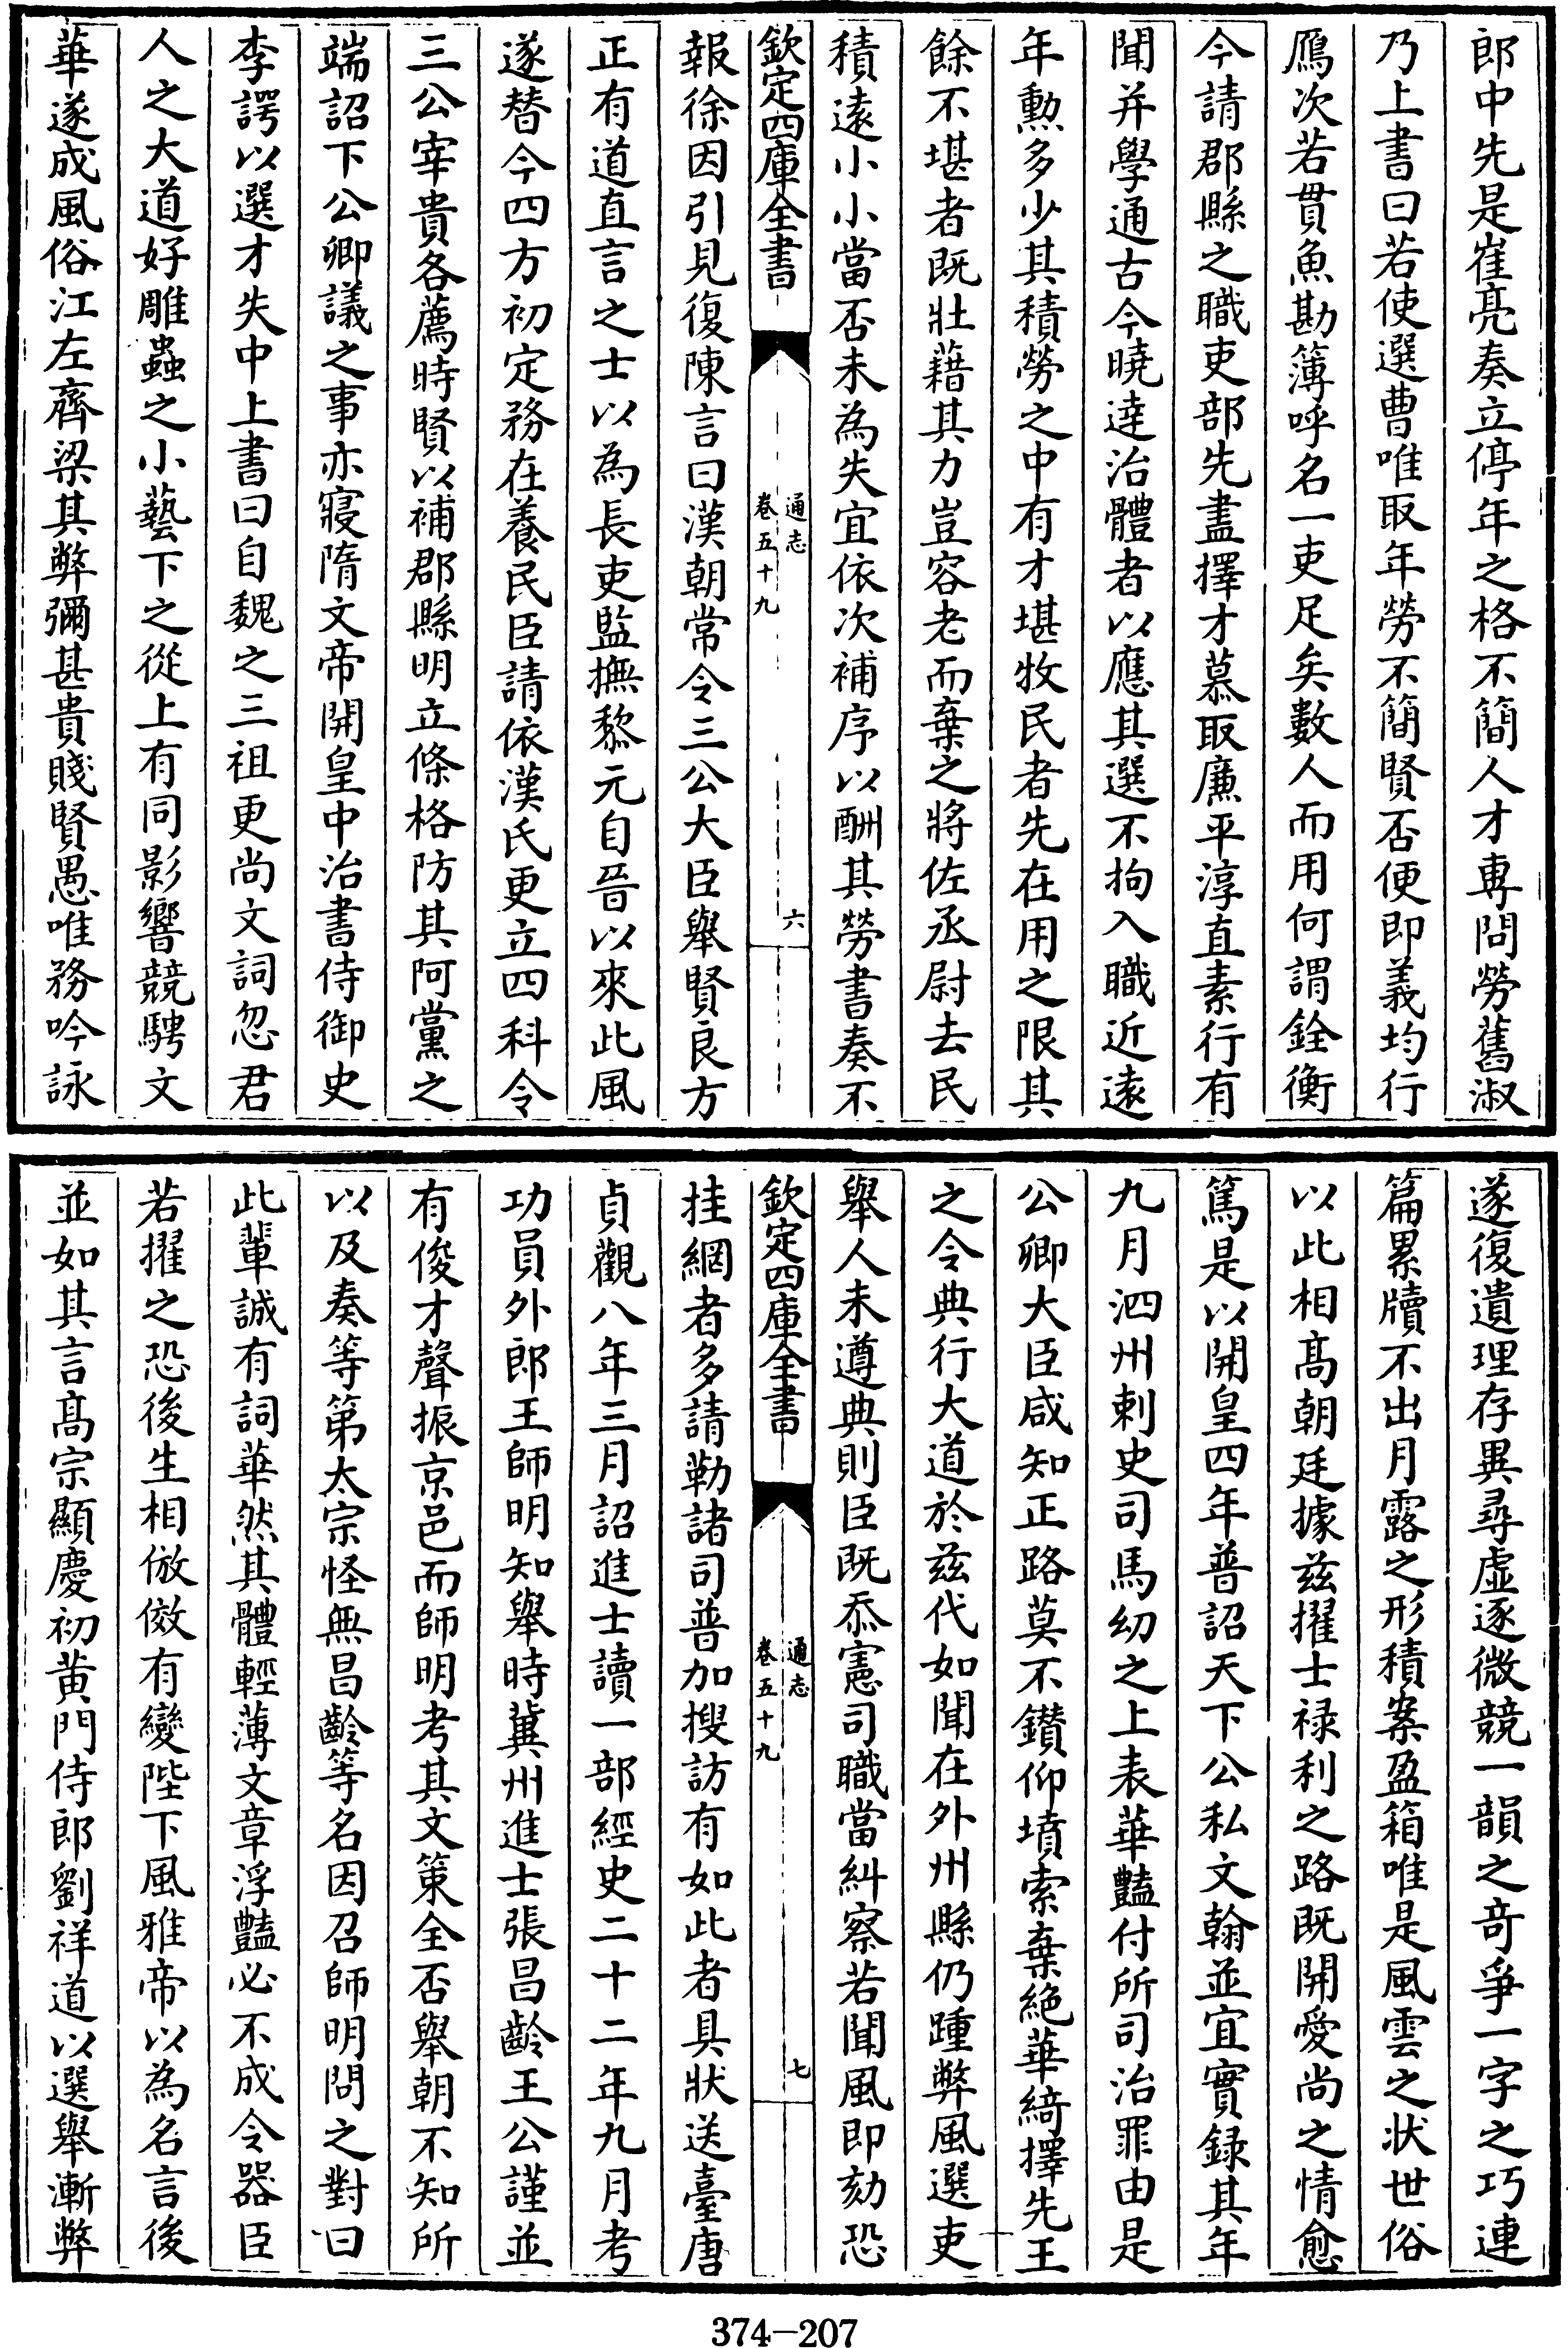 郎中先是崔亮奏立停年之格不簡人才専問勞舊淑
乃上書曰若使選曹唯取年勞不簡賢否便即義均行
鴈次若貫魚勘簿呼名一吏足矣數人而用何謂銓衡
今請郡縣之職吏部先盡擇才慕取廉平淳直素行有
聞并學通古今曉逹治體者以應其選不拘入職近逺
年勲多少其積勞之中有才堪牧民者先在用之限其
餘不堪者既壯藉其力豈容老而棄之將佐丞尉去民
積逺小小當否未為失宜依次補序以酬其勞書奏不
欽定四庫全書
通志
卷五十九
六
報徐因引見復陳言曰漢朝常令三公大臣舉賢良方
正有道直言之士以為長吏監撫黎元自晉以來此風
遂替今四方初定務在養民臣請依漢氏更立四科令
三公宰貴各薦時賢以補郡縣明立條格防其阿黨之
端詔下公卿議之事亦寢隋文帝開皇中治書侍御史
李諤以選才失中上書曰自魏之三祖更尚文詞忽君
人之大道好雕蟲之小藝下之從上有同影響競騁文
華遂成風俗江左齊梁其弊彌甚貴賤賢愚唯務吟詠
遂復遺理存異尋虛逐微競一韻之竒爭一字之巧連
篇累牘不出月露之形積案盈箱唯是風雲之狀世俗
以此相髙朝廷據茲擢士禄利之路既開愛尚之情愈
篤是以開皇四年普詔天下公私文翰並宜實録其年
九月泗州刺史司馬幼之上表華豔付所司治罪由是
公卿大臣咸知正路莫不鑚仰墳索棄絶華綺擇先王
之令典行大道於兹代如聞在外州縣仍踵弊風選吏
舉人未遵典則臣既忝憲司職當糾察若聞風即劾恐
欽定四庫全書
通志
卷五十九
七
挂網者多請勒諸司普加搜訪有如此者具狀送臺唐
貞觀八年三月詔進士讀一部經史二十二年九月考
功員外郎王師明知舉時冀州進士張昌齡王公謹並
有俊才聲振京邑而師明考其文策全否舉朝不知所
以及奏等第太宗怪無昌齡等名因召師明問之對曰
此輩誠有詞華然其體輕薄文章浮豔必不成令器臣
若擢之恐後生相倣傚有變陛下風雅帝以為名言後
並如其言髙宗顯慶初黄門侍郎劉祥道以選舉漸弊
374-207